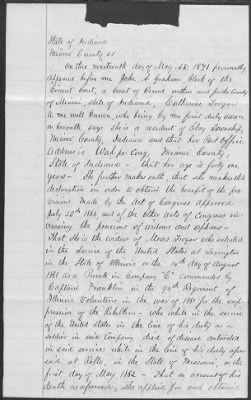 State of Indiana
Miami County SS
On this nineteenth day of May A.D. 1871 personally
appeared before me John A. Graham Clerk of the
Circuit Court, a Court of Record within and for the County
of Miami, State of Indiana, Catharine
to me well known, who being by me first duly sworn
says she is a resident of Clay Township,
Miami County, Indiana and that her Post Office
Address is County,
State of Indiana - that her age is forty one
years - She further makes oath that she makes this
declaration in order to obtain the benefit of the pro
visions made by the Act of Congress approved
July 20th 1868 and of the other acts of Congress in
creasing the pensions of widows and orphans -
That she is the widow of Moses who enlisted
in the Service of the United States at
in the State of Illinois on the 14th day of August
1861 as a Private in Company "C" commanded by
Captain Franklin in the Regiment of
Illinois Volunteers in the war of 1861 for the sup
pression of the Rebellion - who while in the service
of the United States in the line of his duty as a
soldier in said Company died of disease contracted
in said service while in the line of his duty afore
said at Rolla, in the State of Missouri, on the
first day of May 1862 - That on account of his
death as aforesaid, she applied for and obtained